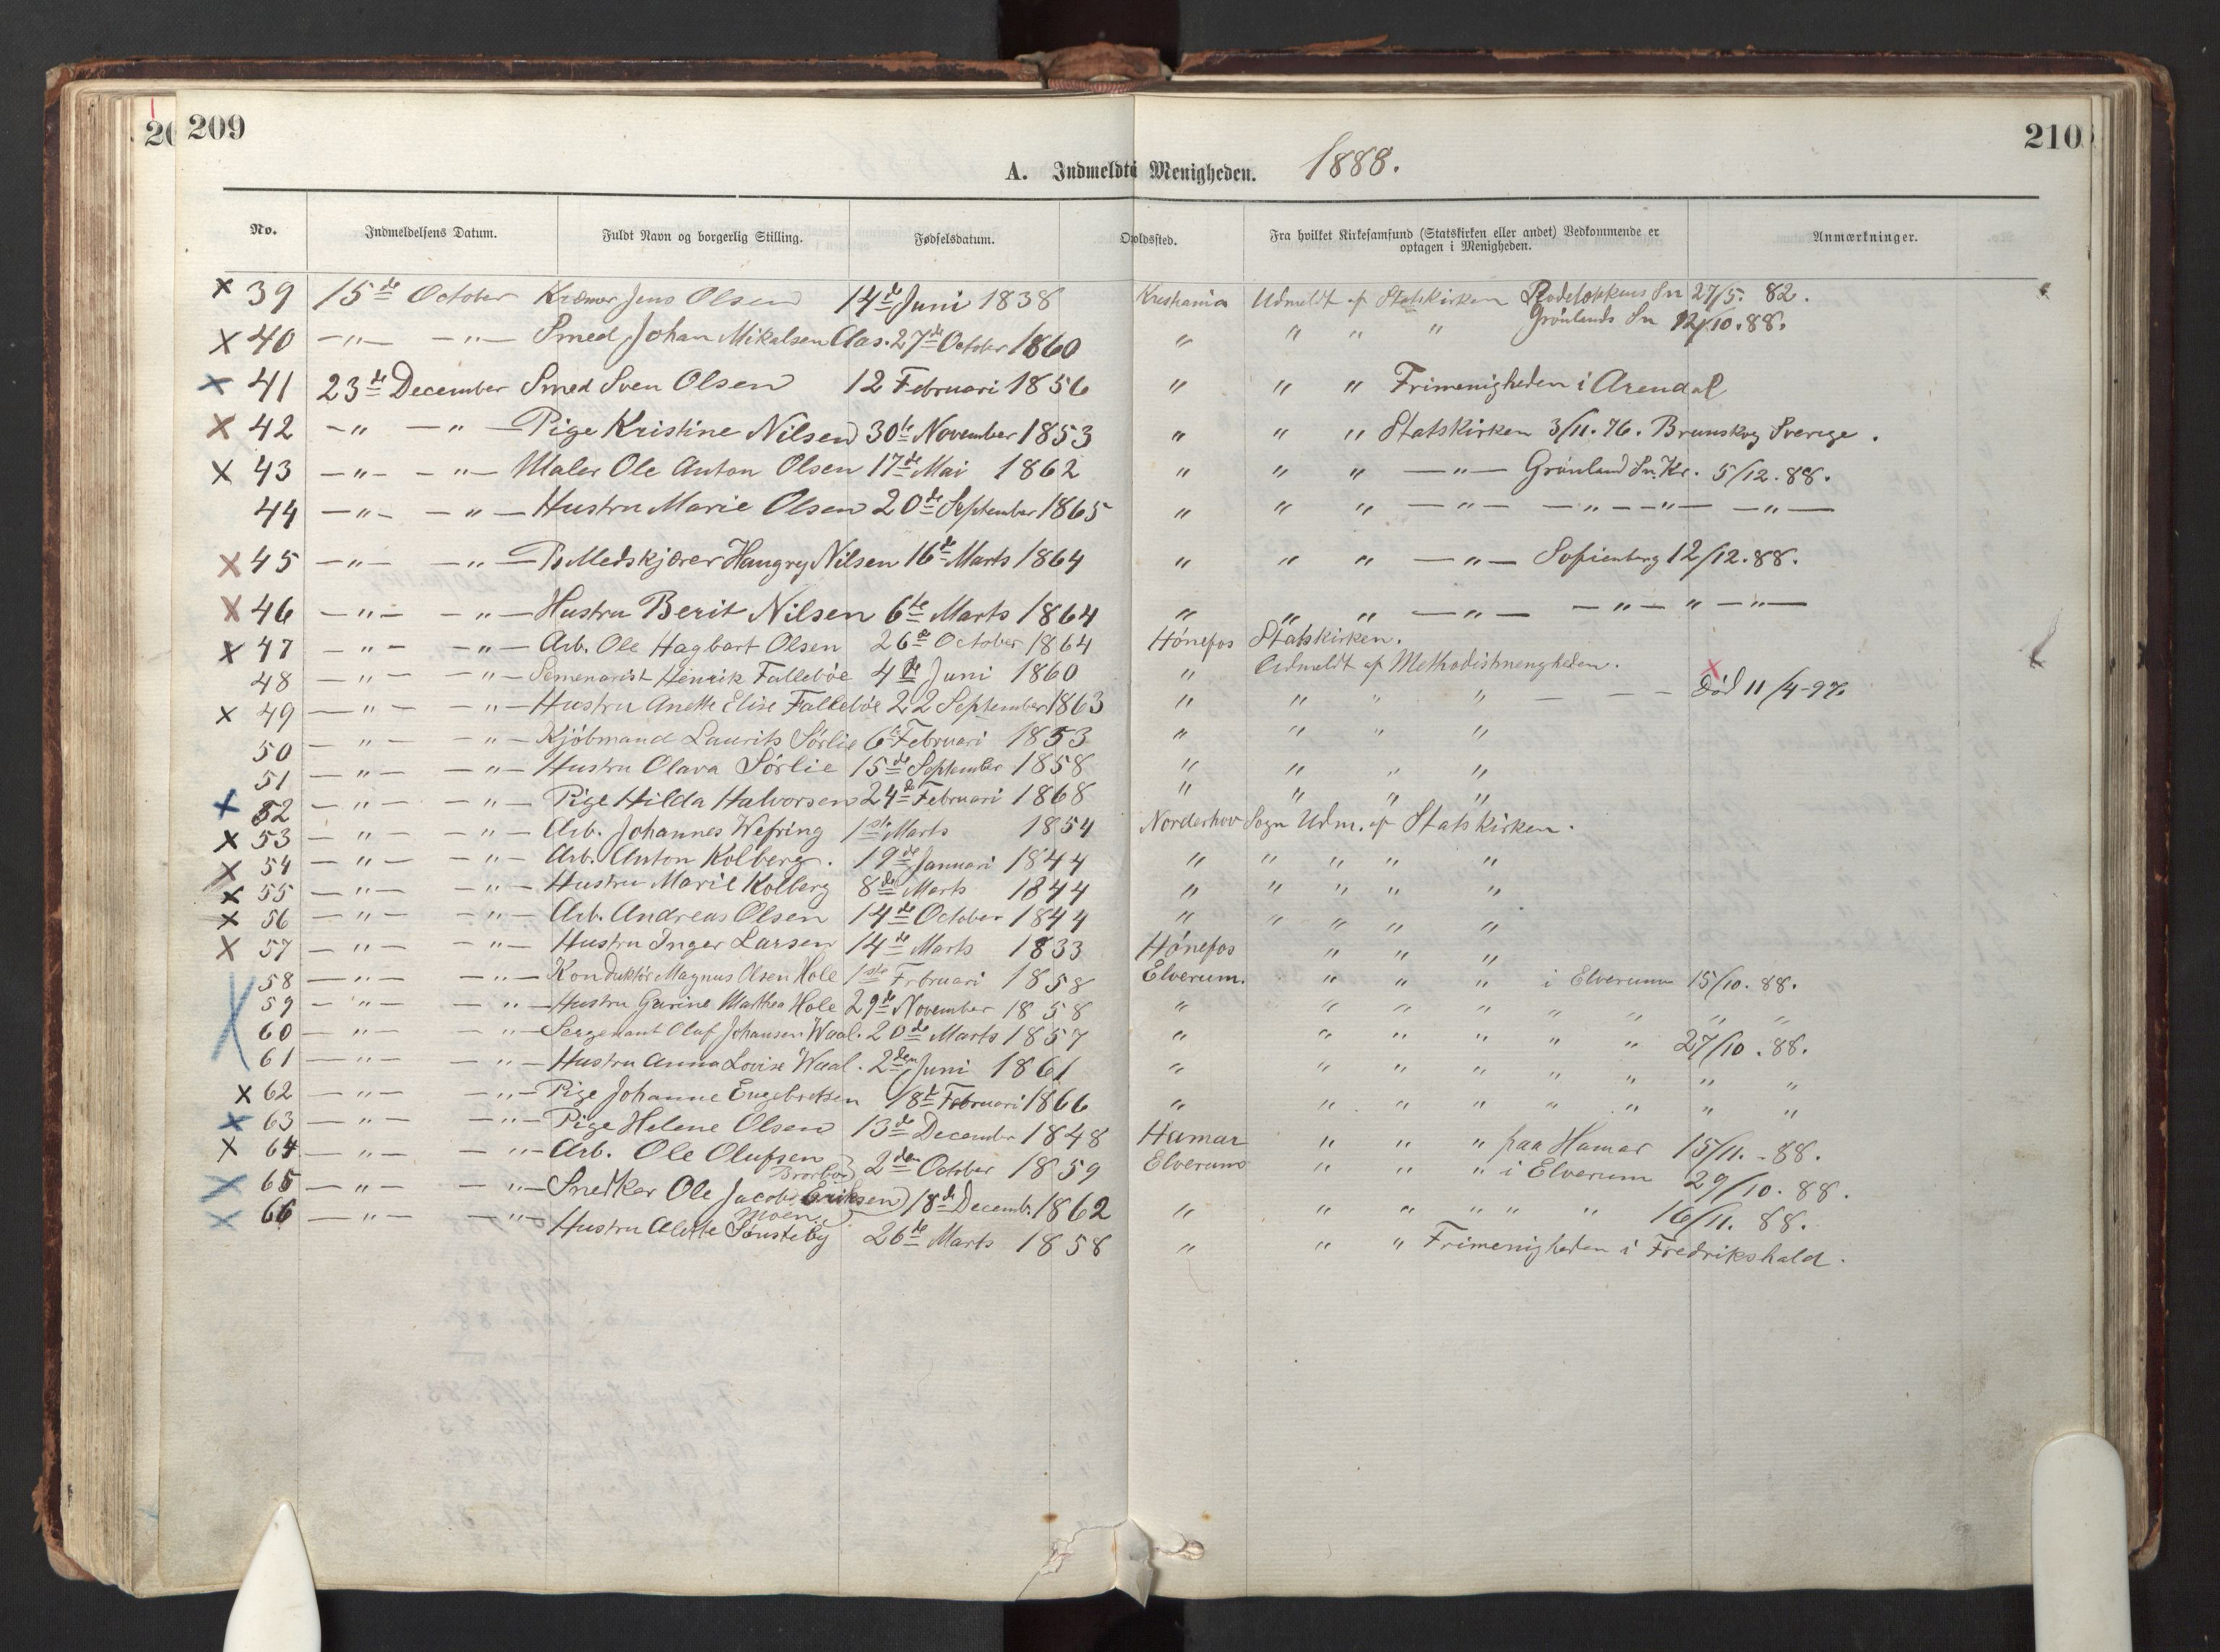 209
210
A. Indmeldte i Menigheden. 1888.
No. Indmeldelsens Datum. Fuldt Navn og borgerlig Stilling. Fødselsdatum. Opholdssted. Fra hvilket Kirkesamfund (Statskirken eller andet) Vedkommende er optagen i Menigheden. Anmærkninger.
x 39 15de October Kræmer Jens Olsen 14de Juni 1838 Kristiania Udmeldt af Statskirken Rodeløkkens Sn 27/5. 82.
x 40 —"— —"— Smed Johan Mikalsen Aas. 27de October 1860 " " " " Grønlands Sn 12/10.88.
x 41 23de December Smed Sven Olsen 12 Februari 1856 " " " Frimenigheden i Arendal
x 42 —" —"— Pige Kristine Nilsen 30te November 1853 " " " Statskirken 3/11.76. Brunskog Sverige.
x 43 —"— —"— Maler Ole Anton Olsen 17de Mai 1862 " " " —"— Grønland Sn. Kr. 5/12.88.
44 —"— —"— Hustru Marie Olsen 20de September 1865 " " " —"— —"——"— —"—
x 45 —"— —"— Nilsen 16de Marts 1864 " " " —"— Sofienberg 12/12.88.
x 46 —"— —"— Hustru Berit Nilsen 6te Marts 1864 " " " —"— —"— " —"—
x 47 —"— —"— Arb. Ole Hagbart Olsen 26de October 1864 Hønefos Statskirken.
48 —"— —"— Semenarist Henrik Fallebøe 4de Juni 1860 " Udmeldt af Methodistmenigheden.
x 49 —"— —"— Hustru Anette Elise Fallebøe 22 September 1863 " " " " — — — x Død 11/4-97
50 —"— —"— Kjøbmand Laurits Sørlie 6te Februari 1853 " " " "
51 —"— —"— Hustru Olava Sørlie 15de September 1858 " " " "
x 52 —"— —"— Pige Hilda Halvorsen 24de Februari 1868 " " " "
x 53 —"— —"— Arb. Johannes Wefring 1ste Marts 1854 Norderhov Sogn Udm. af Statskirken.
x 54 —"— —"— Arb. Anton Kolberg. 19de Januari 1844 " " " " "
x 55 —"— —"— Hustru Marie Kolberg 8de Marts 1844 " " " " "
x 56 —"— —"— Arb. Andreas Olsen 14de October 1844 " " " " "
x 57 —"— —"— Hustru Inger Larsen 14de Marts 1833 Hønefos " " "
58 —"— —"— Konduktør Magnus Olsen Hole 1ste Februari 1858 Elverum. " " " i Elverum 15/10.88.
59 —"— "— Hustru Gurine Marthea Hole 29de November 1858 " " " " " " " "
60 —"— "— Sergenant Oluf Johansen Waal. 20de Marts 1857 " " " " " " 27/10.88.
61 —"— "— Hustru Anna Lovise Waal. 2den Juni 1861 " " " " " " " "
x 62 —"— —"— Pige Johanne Engebretsen 18de Februari 1866 " " " " " " " "
x 63 —"— —"— Pige Helene Olsen 13de December 1848 Hamar " " " paa Hamar 15/11.-88.
x 64 —"— "— Arb. Ole Olufsen 2den October 1859 Elverum " " " i Elverum 29/10.88.
x 65 —"— "— Snedker Ole Jacob Eriksen 18de Decemb. 1862 " " " " " " 16/11.88.
Moen
x 66 —"— —"— Hustru Alette Sønsteby 26de Marts 1858 " " " Frimenigheden i Fredrikshald.